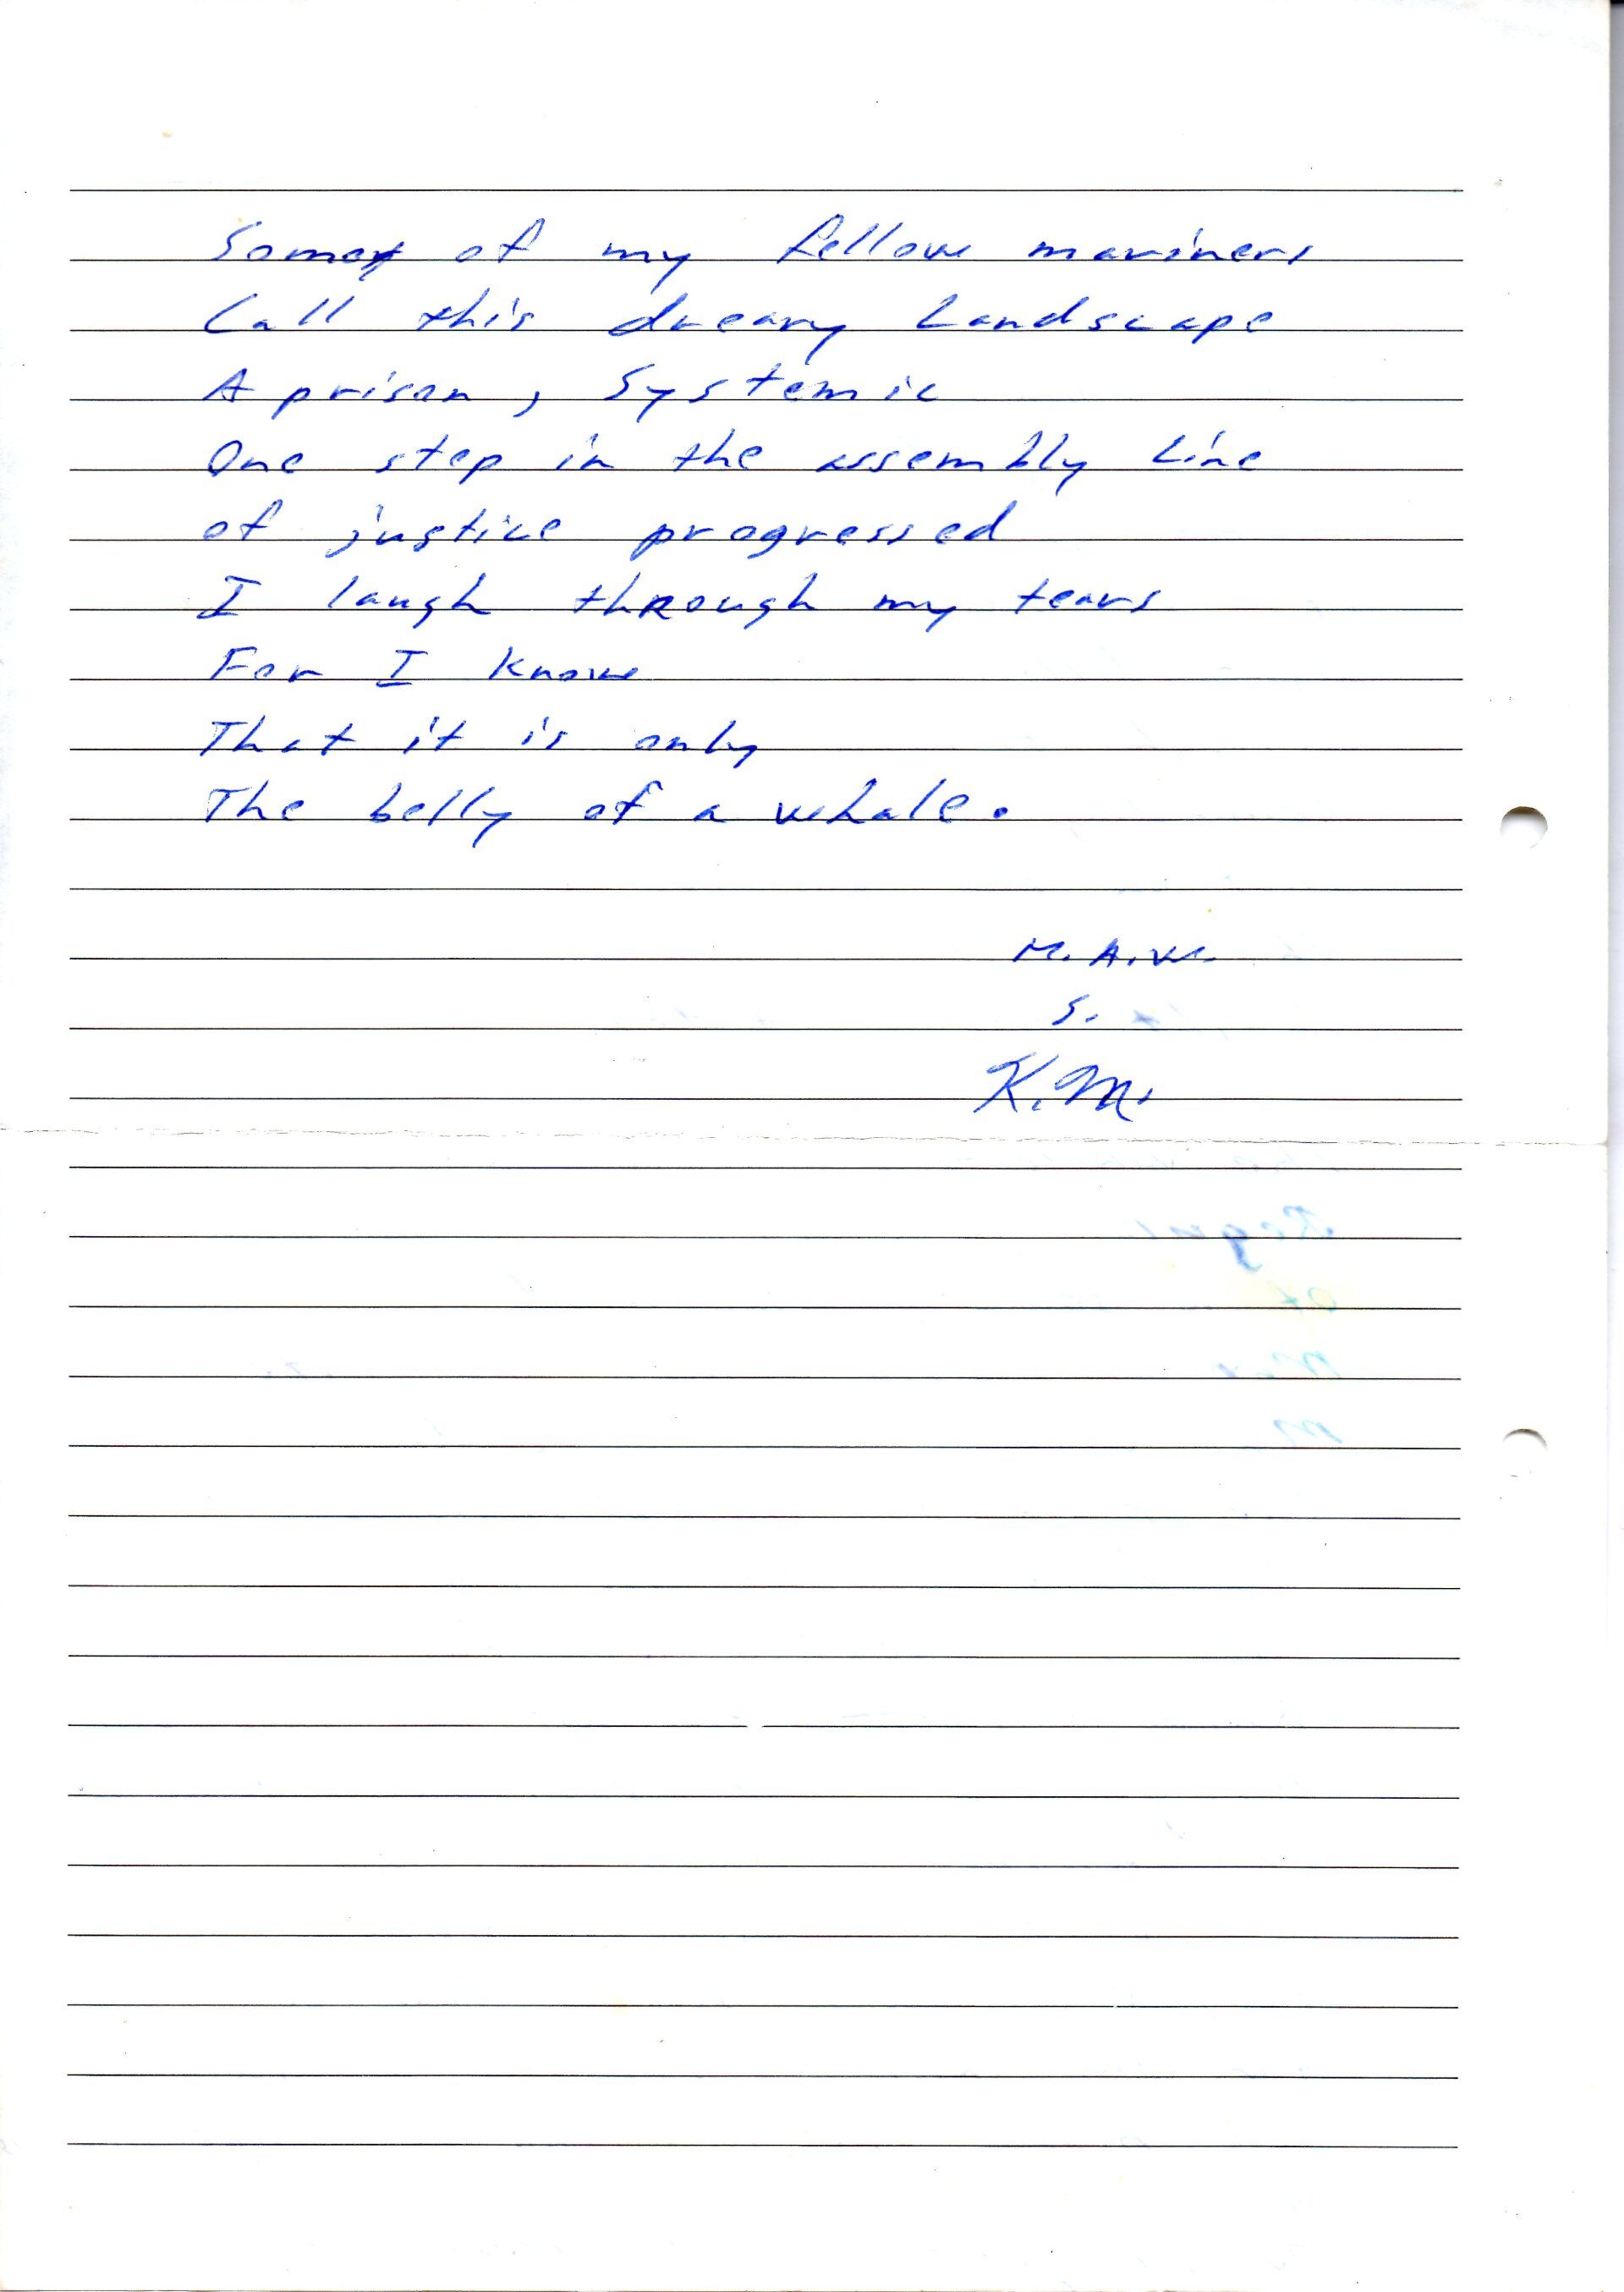 Some of my fellow mariners
Call this dreary Landscape
A prison, Systemic
One step in the assembly Line
of justice progressed
I laugh through my tears
For I know
That it is only
The belly of a whale.
M. A. W.
S.
K. M.